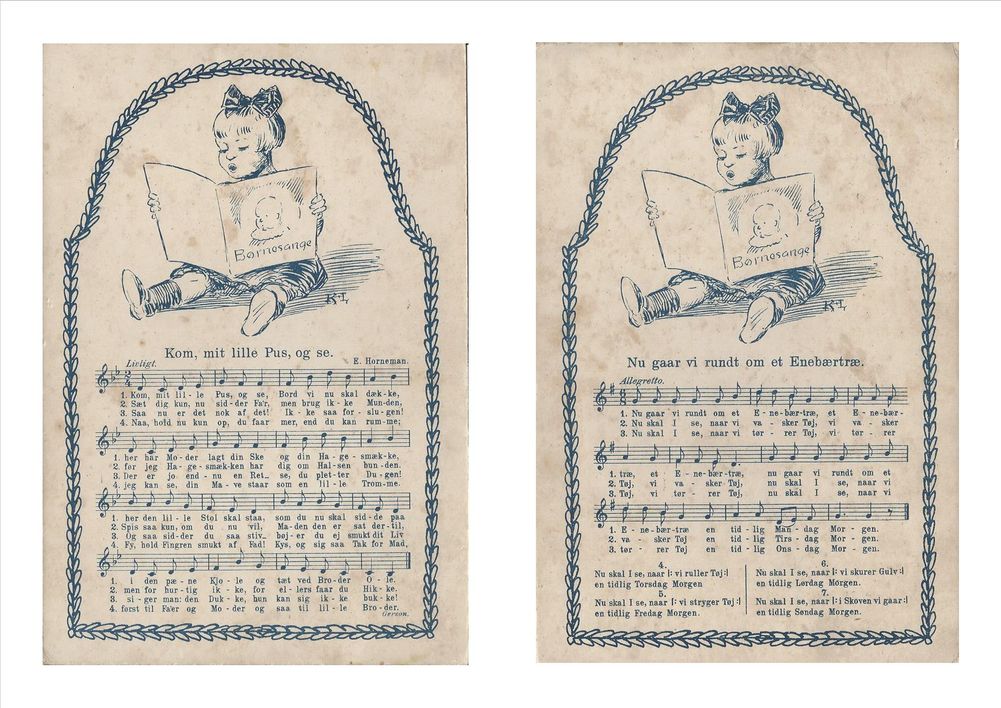 Børnesange
KI
Kom, mit lille Pus, og se.
Livligt.
E. Horneman.
1. Kom, mit lil - le Pus, og se, Bord vi nu skal dæk - ke,
2. Sæt dig kun, nu sid - der Fa'r, men brug ik - ke Mun - den,
3. Saa nu er det nok af det! Ik - ke saa for - slu - gen!
4. Naa, hold nu kun op, du faar mer, end du kan rum - me;
1. her har Mo - der lagt din Ske og din Ha - ge - smæk - ke,
2. før jeg Ha - ge - smæk - ken har dig om Hal - sen bun - den.
3. Der er jo end - nu en Ret _ se, du plet - ter Du - gen!
4. jeg kan se, din Ma - ve staar som en lil - le Trom - me.
1. her den lil - le Stol skal staa, som du nu skal sid - de paa
2. Spis saa kun, om du nu vil, Ma - den den er sat der - til,
3. Og saa sid - der du saa stiv _ bøj - er du ej smukt dit Liv
4. Fy, hold Fingren smukt af Fad! Kys, og sig saa Tak for Mad,
1. i den pæ - ne Kjo - le og tæt ved Bro - der O - le.
2. men for hur - tig ik - ke, for el - lers faar du Hik - ke.
3. si - ger man: den Duk - ke, hun kan sig ik - ke buk - ke!
4. først til Fa'er og Mo - der og saa til lil - le Bro - der.
Gerson.
Børnesange
KI
Nu gaar vi rundt om et Enebærtræ.
Allegretto.
1. Nu gaar vi rundt om et E - ne - bær - træ, et E - ne - bær -
2. Nu skal I se, naar vi va - sker Tøj, vi va - sker
3. Nu skal I se, naar vi tør - rer Tøj, vi tør - rer
1. træ, et E - ne - bær - træ, nu gaar vi rundt om et
2. Tøj, vi va - sker Tøj, nu skal I se, naar vi
3. Tøj, vi tør - rer Tøj, nu skal I se, naar vi
1. E - ne - bær - træ en tid - lig Man - dag Mor - gen.
2. va - sker Tøj en tid - lig Tirs - dag Morgen.
3. tør - rer Tøj en tid - lig Ons - dag Mor - gen.
4.
Nu skal I se, naar |: vi ruller Tøj :|
en tidlig Torsdag Morgen
5.
Nu skal I se, naar |: vi stryger Tøj :|
en tidlig Fredag Morgen.
6.
Nu skal I se, naar |: vi skurer Gulv :|
en tidlig Lørdag Morgen.
7.
Nu skal I se, naar |: i Skoven vi gaar :|
en tidlig Søndag Morgen.